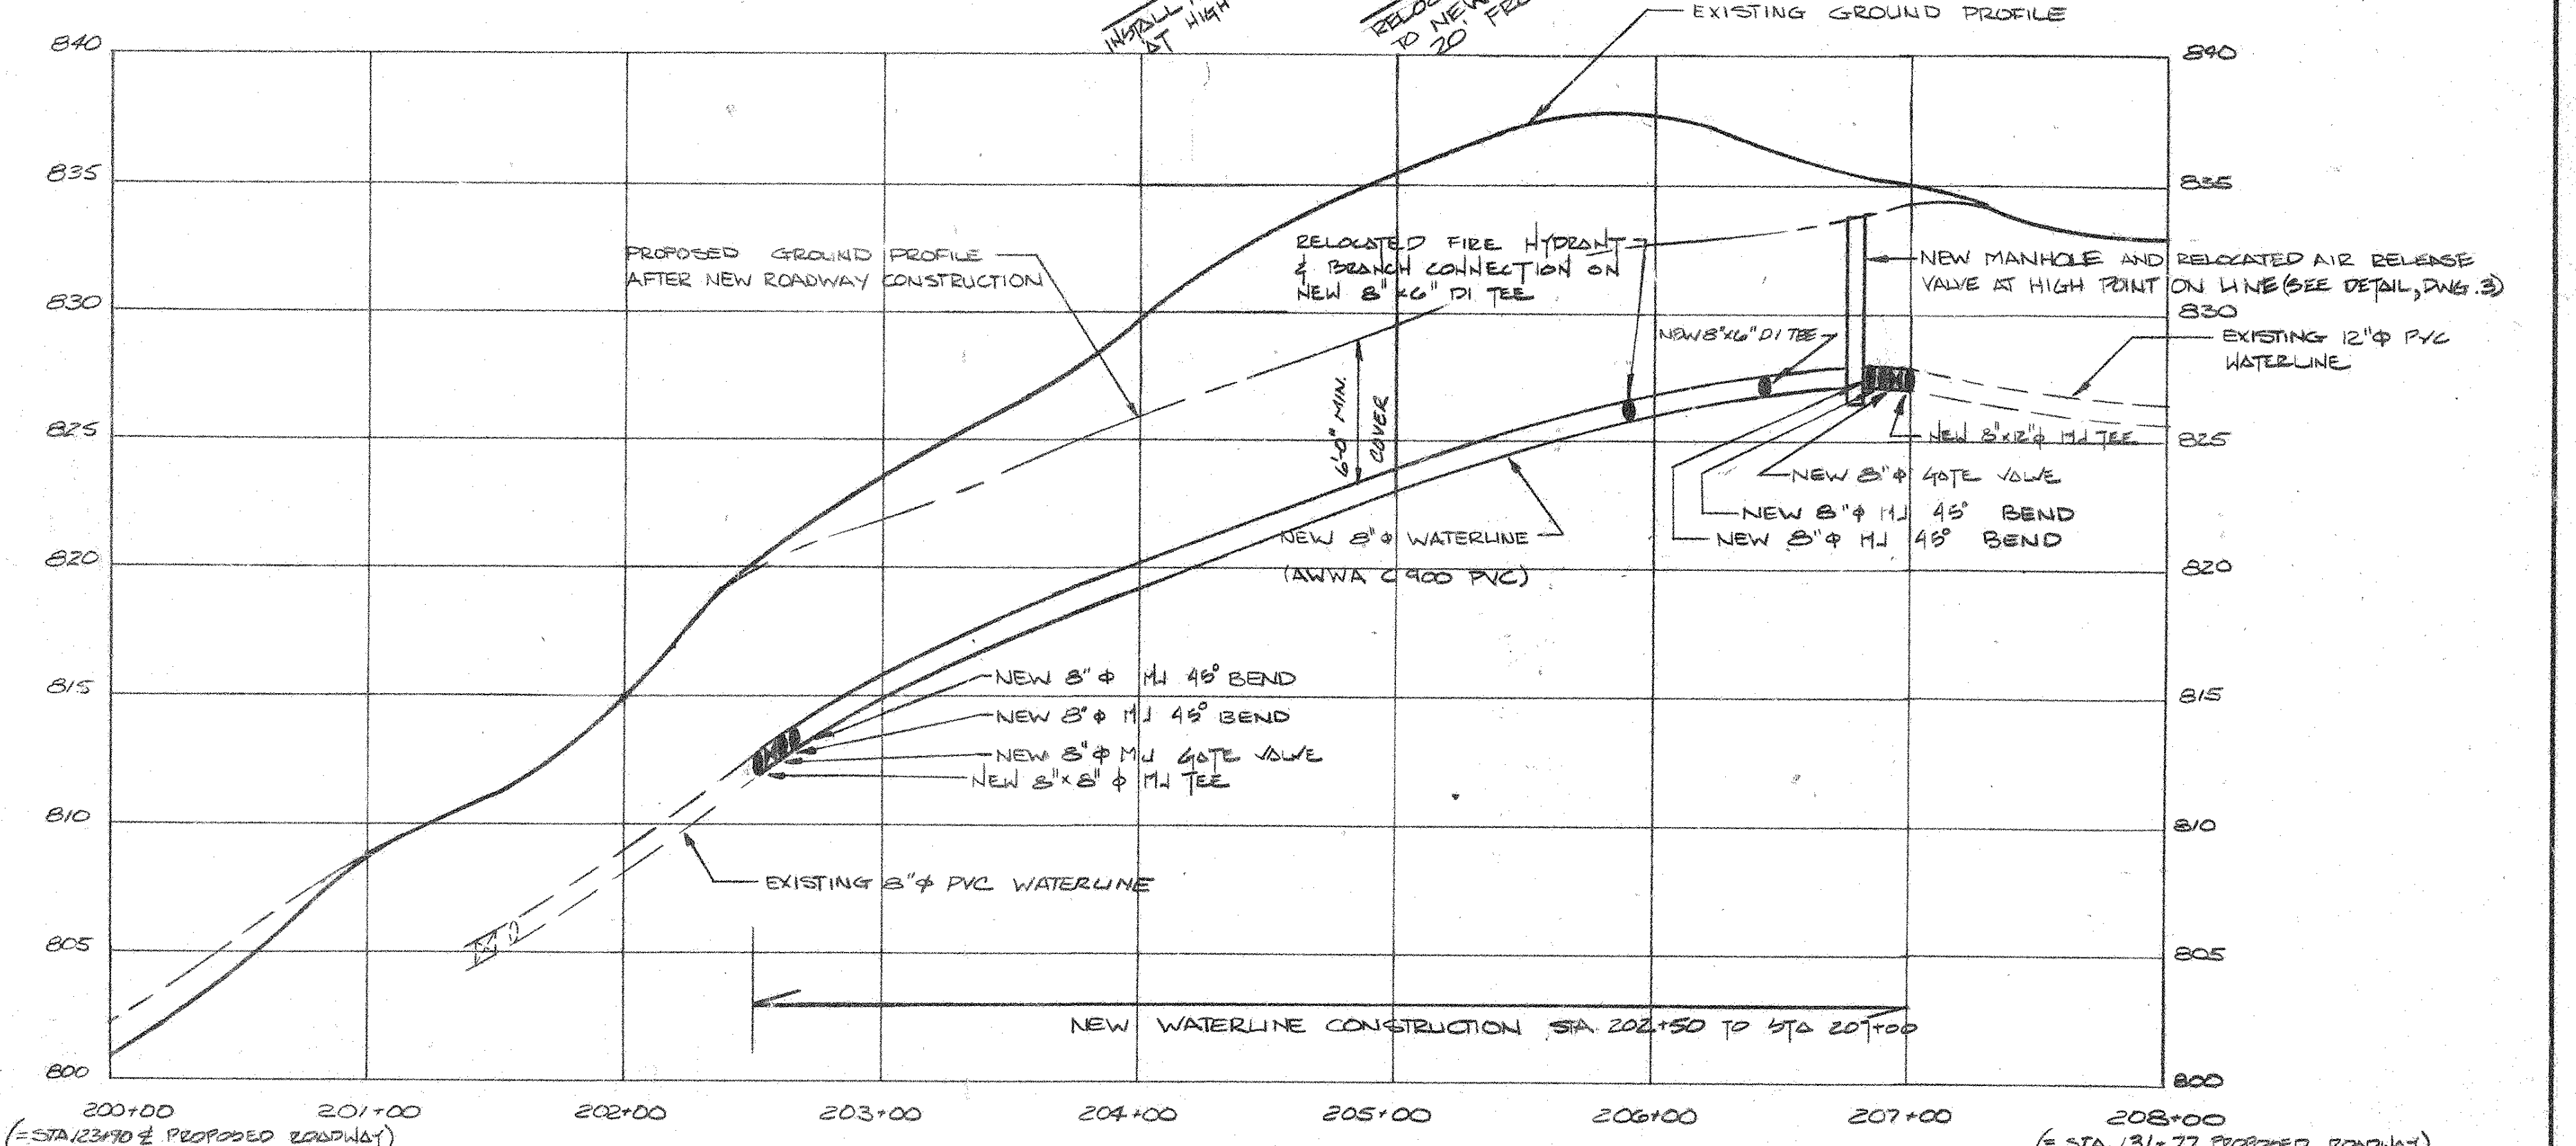 INSTALL
AT HIGH
TO NEW
20' FRO
EXISTING GROUND PROFILE
840
840
835
835
PROPOSED GROUND PROFILE
AFTER NEW ROADWAY CONSTRUCTION
RELOCATED FIRE HYDRANT
& BRANCH CONNECTION ON
NEW 8"x6" DI TEE
NEW MANHOLE AND RELOCATED AIR RELEASE
VALVE AT HIGH POINT ON LINE (SEE DETAIL, DWG. 3)
830
830
NEW 8"x6" DI TEE
EXISTING 12"Φ PVC
WATERLINE
6'-0" MIN.
COVER
825
825
NEW 8"x12"Φ MJ TEE
NEW 8"Φ GATE VALVE
NEW 8"Φ MJ 45° BEND
NEW 8"Φ MJ 45° BEND
NEW 8"Φ WATERLINE
(AWWA C 900 PVC)
820
820
NEW 8"Φ MJ 45° BEND
NEW 8"Φ MJ 45° BEND
NEW 8"Φ MJ GATE VALVE
NEW 8"x8"Φ MJ TEE
815
815
810
810
EXISTING 8"Φ PVC WATERLINE
805
805
NEW WATERLINE CONSTRUCTION STA 202+50 TO STA 207+00
800
800
200+00 201+00 202+00 203+00 204+00 205+00 206+00 207+00 208+00
(=STA 123+90 ℄ PROPOSED ROADWAY)
(= STA. 131+77 PROPOSED ROADWAY)